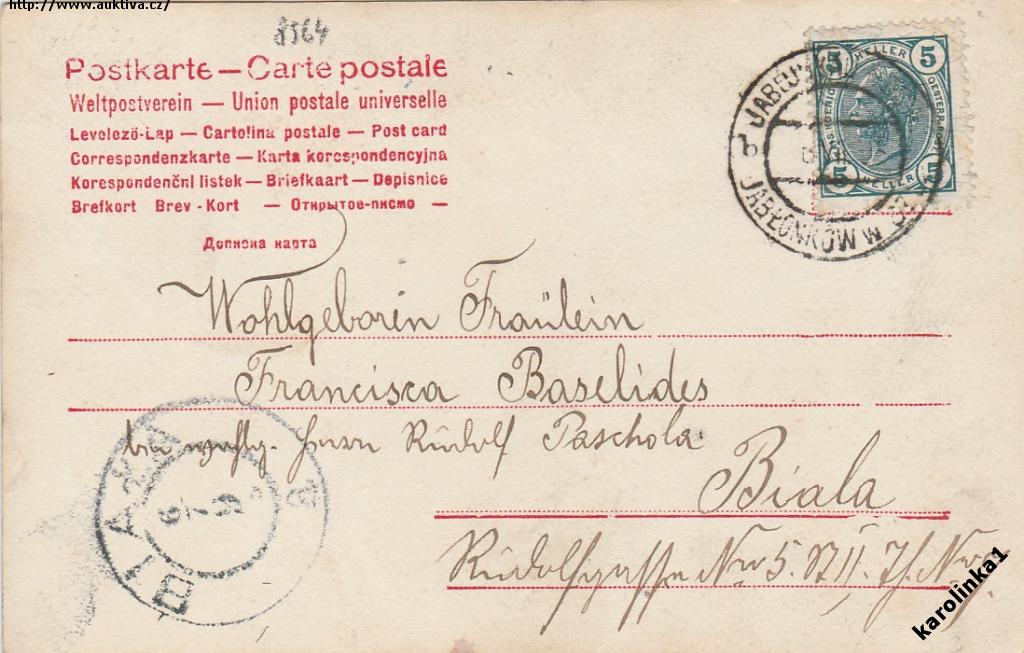 http://www.auktiva.cz/
8564
Postkarte — Carte postale
Weltpostverein — Union postale universelle
Levelező-Lap — Cartolina postale — Post card
Correspondenzkarte — Karta korespondencyjna
Korespondenční listek — Briefkaart — Dopisnice
Brefkort Brev-Kort — Открытое-писмо —
Дописна карта
5 HELLER 5
5 HELLER 5
JABŁONKÓW W
Wohlgeboren Fräulein
Francisca Baselides
bei wohlg. Herrn Rudolf Paschola
Biala
Rudolfgasse Nro 5. St II.
BIALA
karolinka1